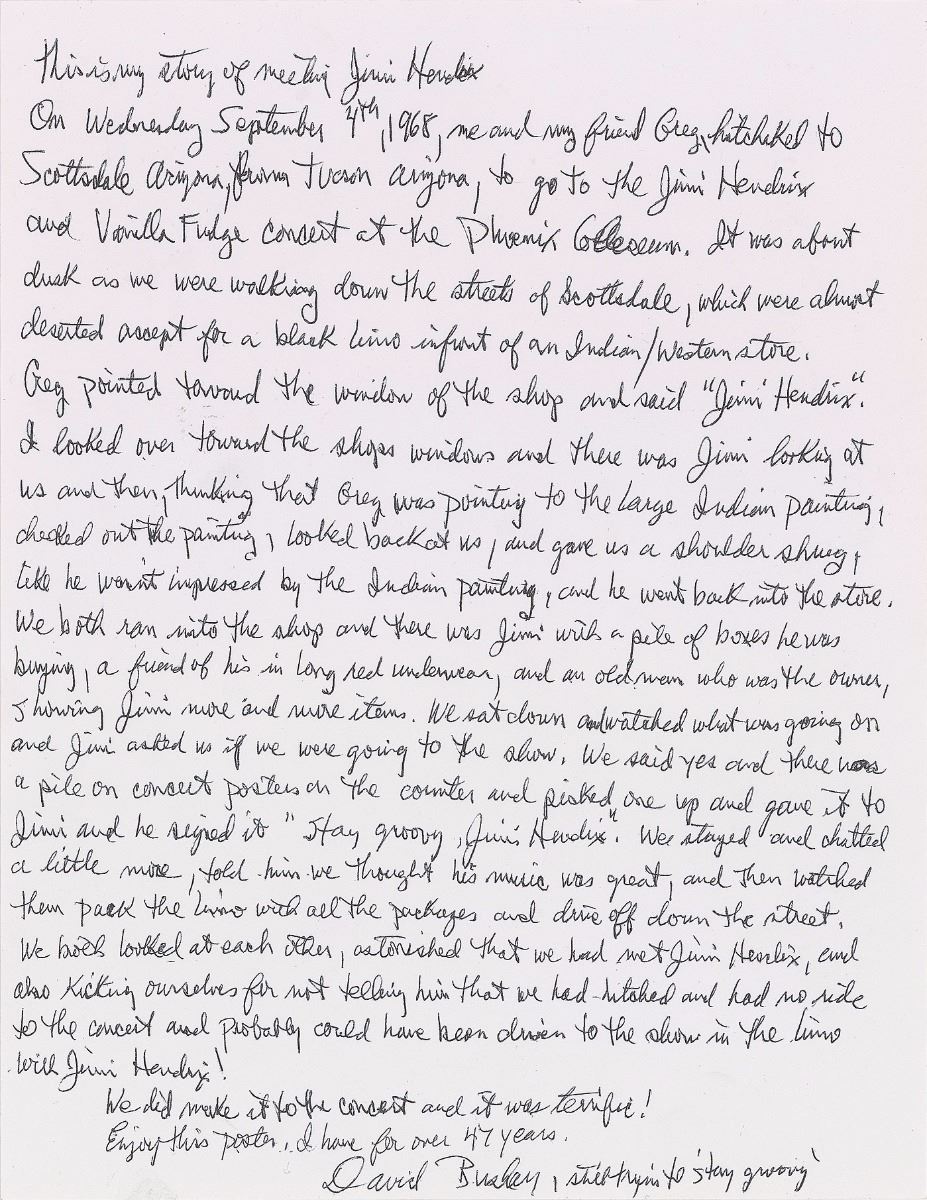 This is my story of meeting Jimi Hendrix
On Wednesday September 4th, 1968, me and my friend Greg, hitchiked to
Scottsdale Arizona, from Tucson Arizona, to go to the Jimi Hendrix
and Vanilla Fudge concert at the Phoenix Colleseum. It was about
dusk as we were walking down the streets of Scottsdale, which were almost
deserted accept for a black limo infront of an Indian/Western store.
Greg pointed toward the window of the shop and said "Jimi Hendrix".
I looked over toward the shops windows and there was Jimi looking at
us and then, thinking that Greg was pointing to the large Indian painting,
checked out the painting, looked back at us, and gave us a shoulder shrug,
like he wasn't impressed by the Indian painting, and he went back into the store.
We both ran into the shop and there was Jimi with a pile of boxes he was
buying, a friend of his in long red underwear, and an old man who was the owner,
showing Jimi more and more items. We sat down and watched what was going on
and Jimi asked us if we were going to the show. We said yes and there was
a pile on concert posters on the counter and picked one up and gave it to
Jimi and he signed it "Stay groovy, Jimi Hendrix". We stayed and chatted
a little more, told him we thought his music was great, and then watched
them pack the limo with all the packages and drive off down the street.
We both looked at each other, astonished that we had met Jimi Hendrix, and
also kicking ourselves for not telling him that we had hitched and had no ride
to the concert and probably could have been driven to the show in the limo
with Jimi Hendrix!
We did make it to the concert and it was terrific!
Enjoy this poster. I have for over 47 years.
David, still tryin to 'stay groovy'